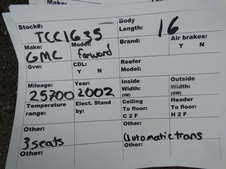 Stock#: TCC1635
Body Length: 16
Make: GMC
Model: forward
Brand:
Air brakes: Y N
Gvw:
CDL: Y N
Reefer Model:
Mileage: 25700
2002
Inside Width: (IW)
Outside Width: (OW)
Temperature range:
Elect. Stand by:
Ceiling To floor: C 2 F
Header To floor: H 2 F
Other: 3 seats
Other: Automatic trans